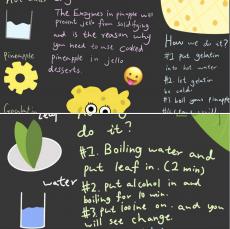 The Enzymes in pinapple will
prevent jello from solidifying
and is the reason why
you need to use cooked
pineapple in jello
desserts.
Pineapple
How we do it?
#1 put gelatin
into hot water
#2. let gelatin
be cold!
#3 boil your pinapple
do it?
#1. Boiling water and
put leaf in. (2 min)
#2. put alcohol in and
boiling for 10 min.
#3. put Iodine on. and you
will see change.
water